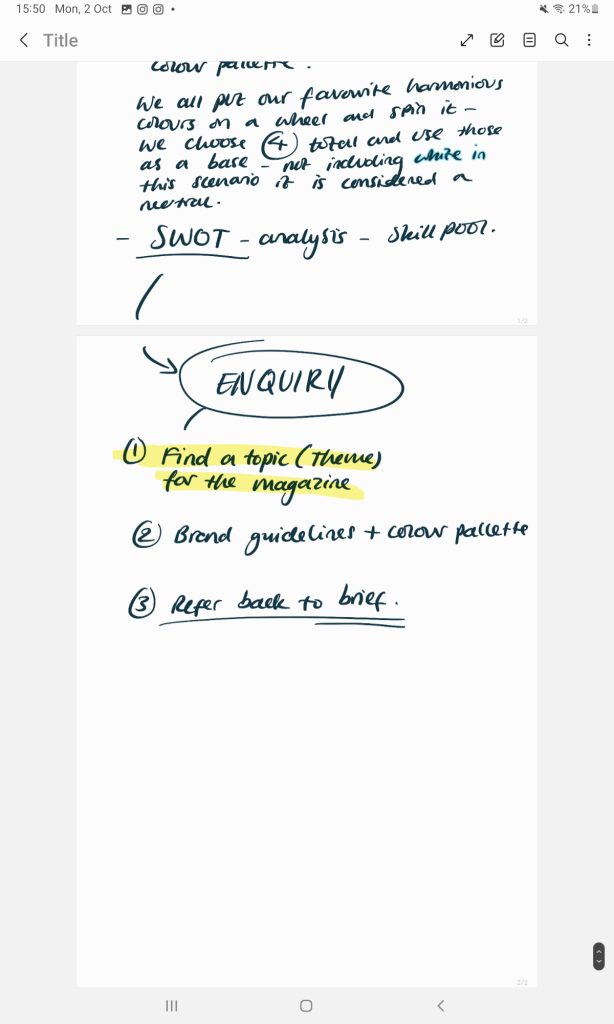 15:50 Mon, 2 Oct
21%
Title
colour pallette.
We all put our favourite harmonious
colours on a wheel and spin it -
we choose (4) total and use those
as a base - not including white in
this scenario it is considered a
neutral.
- SWOT - analysis - skill pool.
1/2
ENQUIRY
① Find a topic (Theme)
for the magazine
② Brand guidelines + colour pallette
③ Refer back to brief.
2/2